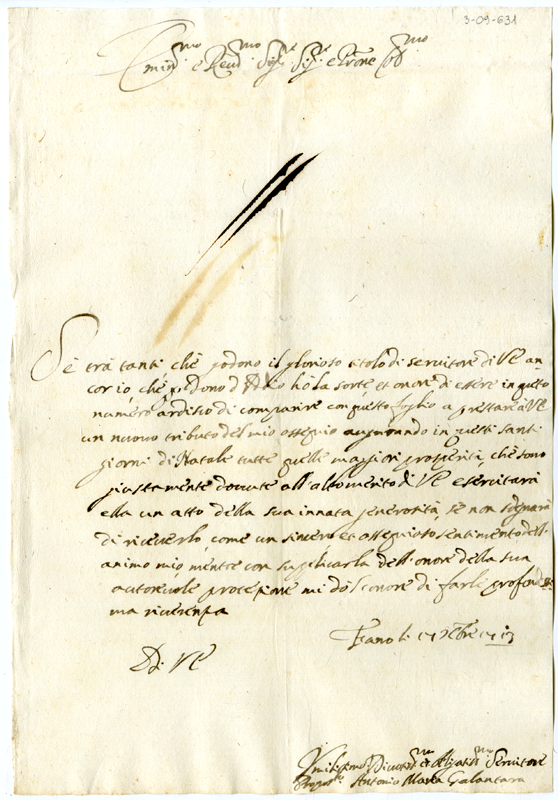 3-09-631
Emin.mo e Reud.mo Sig.r Sig.r e Prone Col.mo
Se trà tanti chè godono il glorioso titolo di seruitore di VE an-
cor io, chè p dono d hò la sorte et onore di essere in questo
numero ardisco di comparire con questo foglio a prestare à VE
un nuouo tributo del mio ossequio augurando in questi santi
giorni di Natale tutte quelle maggiori prosperità, chè sono
giustamente douute all'alto merito di VE esercitarà
ella un atto della sua innata generosità, se non sdegnarà
di riceuerlo, come un sincero et ossequioso sentimento dell'
animo mio, mentre con suplicarla dell'onore della sua
autoreuole protezione mi dò l'onore di farle profondissi-
ma riuerenza
Fano li 17 Xbre 17
Di VE
Vmilissimo Diuotis.mo et Obligatis.mo Seruitore
Antonio Maria Galantara